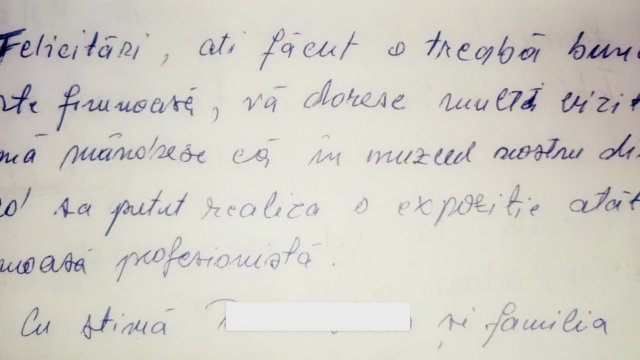 Felicitări, ati făcut o treabă bună
frumoasă, vă doresc multă vizit
mă mândresc că în muzeul nostru din
sa putut realiza o expoziție atât
moasă profesionistă.
Cu stimă și familia